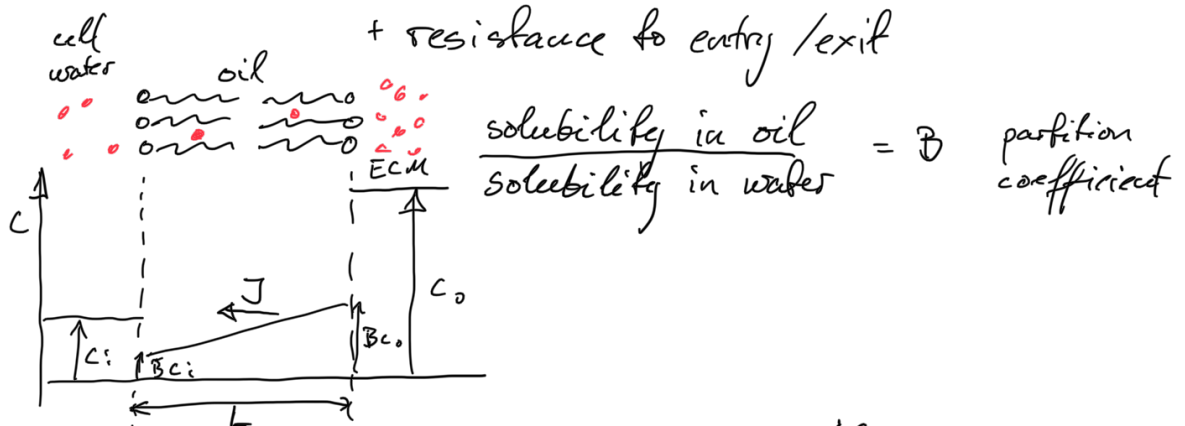 cell
water
oil
+ resistance to entry / exit
solubility in oil
solubility in water
= B
partition
coefficient
ECM
C
J
C₀
Ci
BCi
BC₀
L